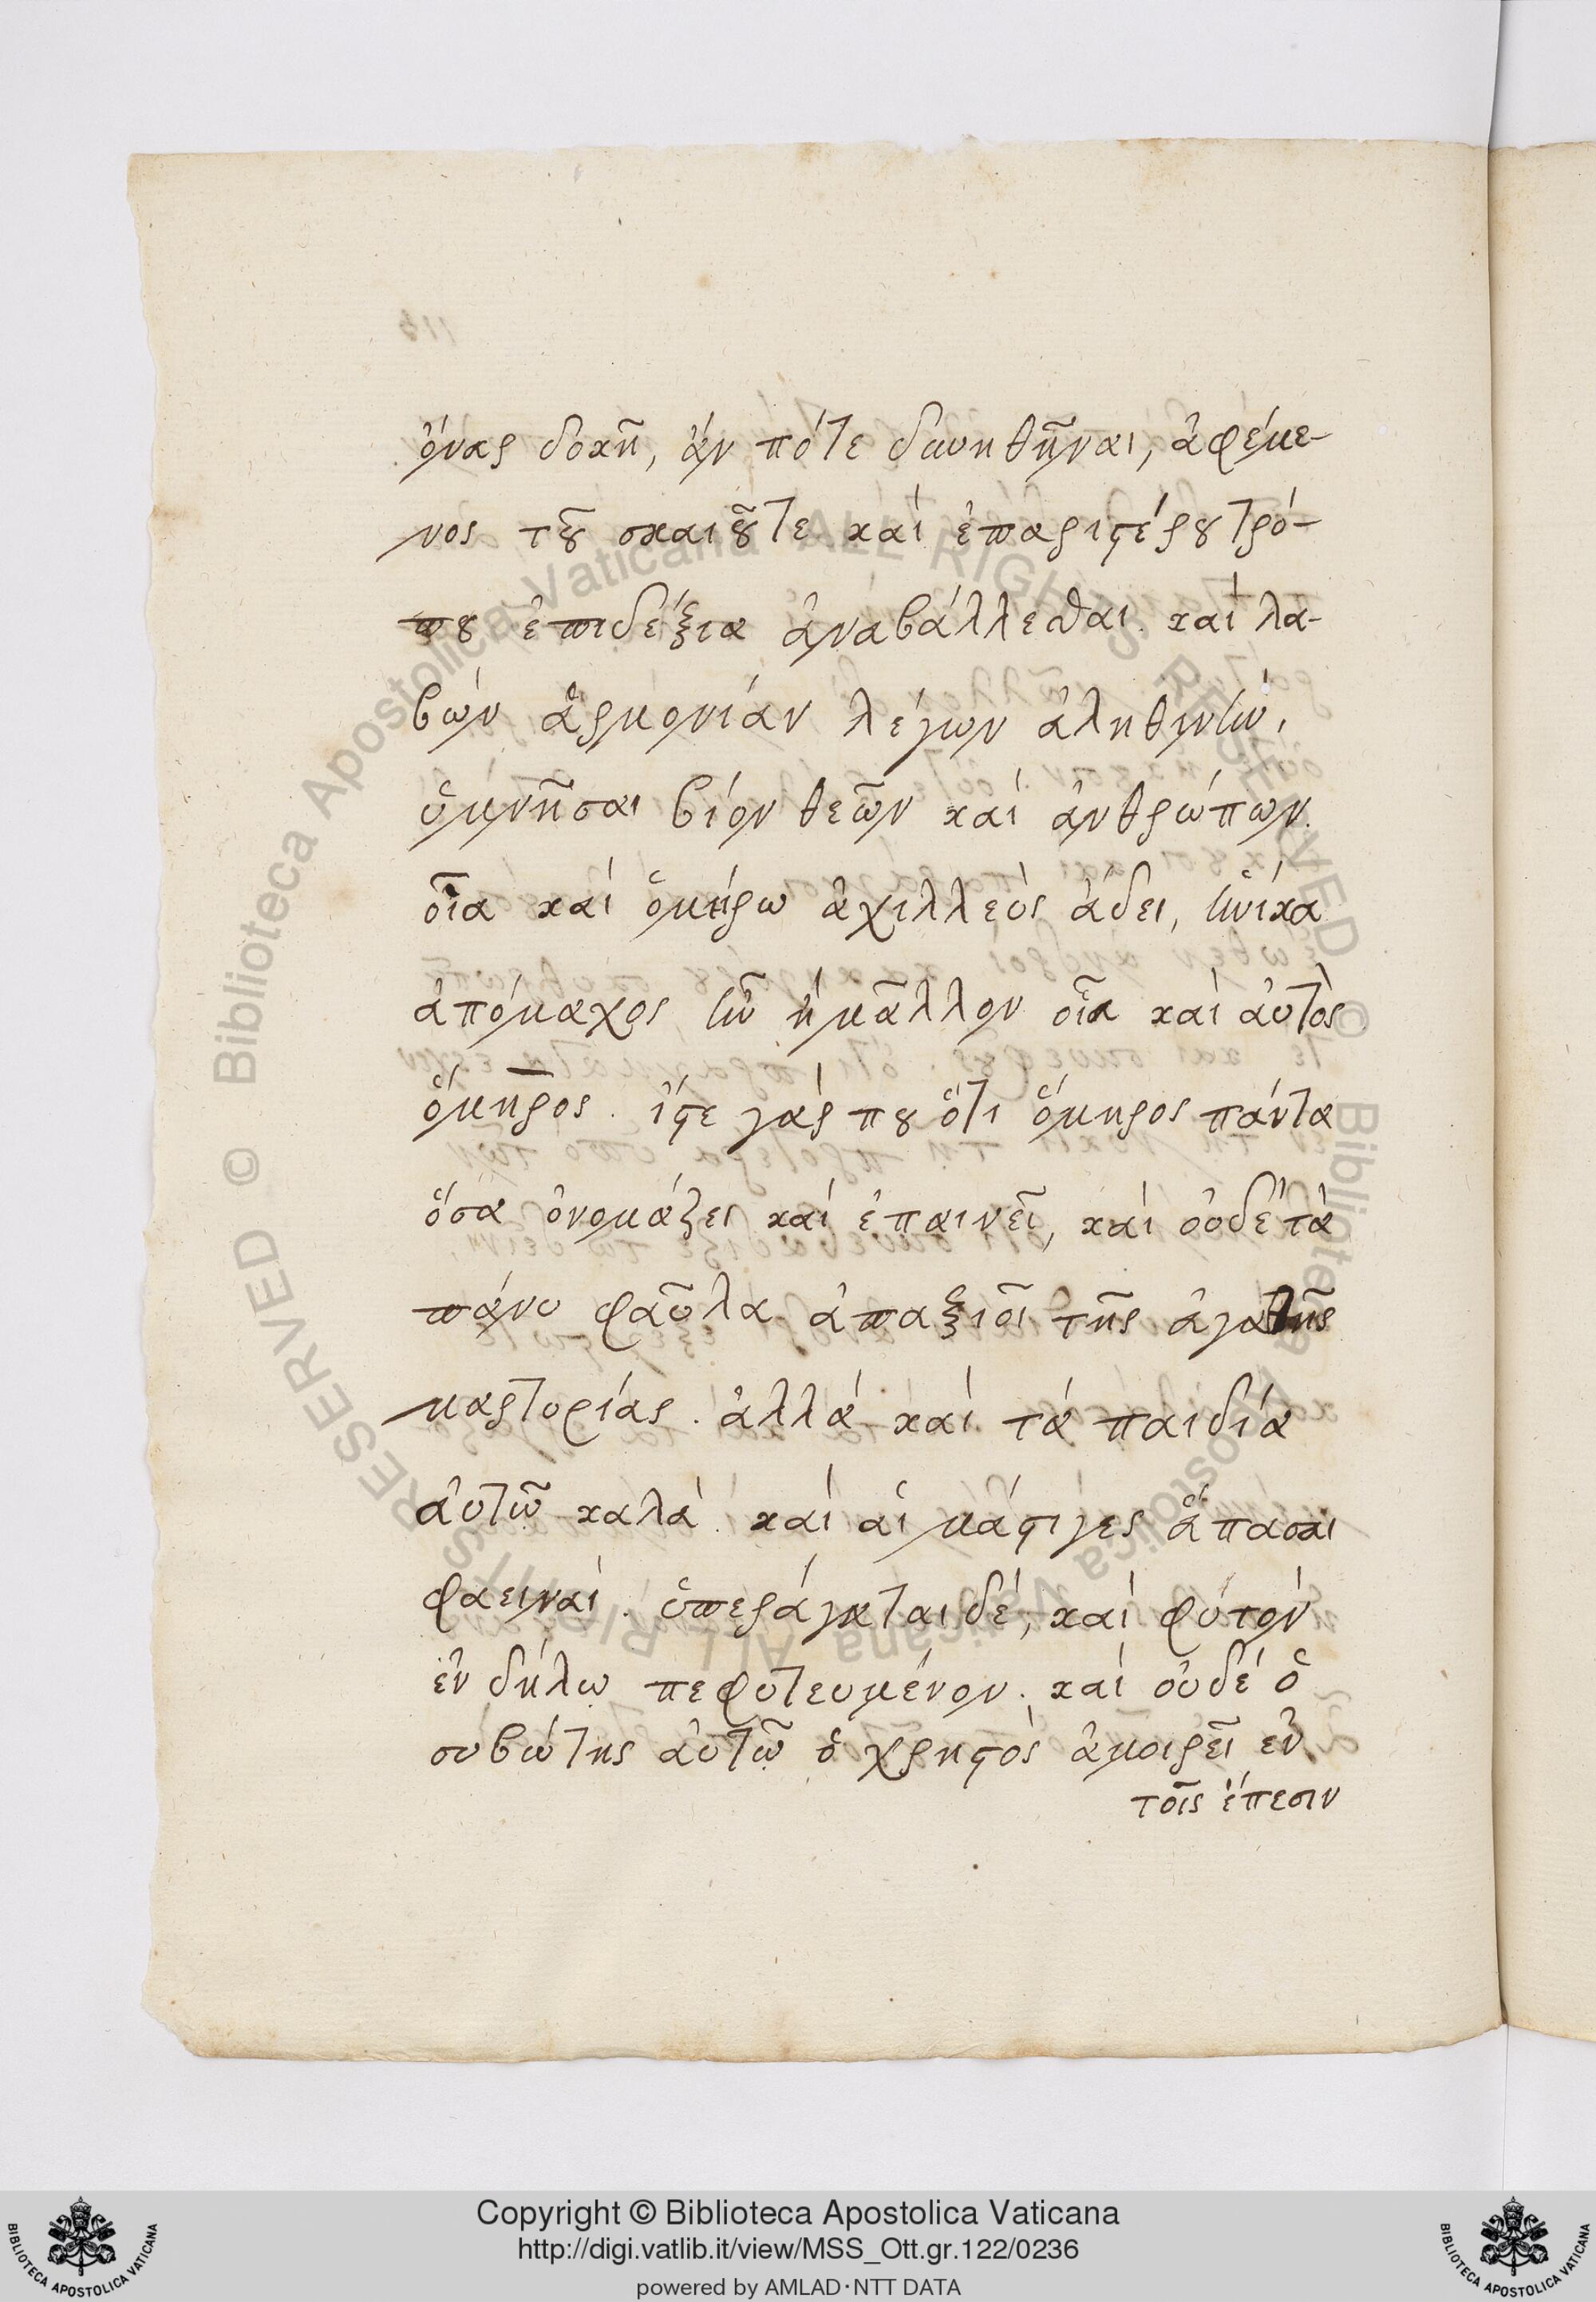 ὄνας δοκῆ, ἄν πότε δυνηθῆναι, ἀφέμε-
νος τοῦ σκαιοῦτε καὶ ἐπαριστέρου τρό-
που ἐπιδέξια ἀναβάλλεσθαι. καὶ λα-
βὼν ἁρμονίαν λέγων ἀληθινὴν,
ὑμνῆσαι βίον θεῶν καὶ ἀνθρώπων.
οἷα καὶ ὁμήρω ἀχιλλεὺς ἄδει, ἡνίκα
ἀπόμαχος ἦν ἢ μᾶλλον οἷα καὶ αὐτὸς
ὅμηρος. ἴστε γάρ που ὅτι ὅμηρος πάντα
ὅσα ὀνομάζει καὶ ἐπαινεῖ, καὶ οὐδὲ τὰ
πάνυ φαῦλα ἀπαξιοῖ τῆς ἀγαθῆς
μαρτυρίας. ἀλλὰ καὶ τὰ παιδία
αὐτῶ καλὰ. καὶ αἱ μάστιγες ἅπασαι
φαειναί. ὑπεράγαται δέ, καὶ φυτὸν
ἐν δήλω πεφυτευμένον. καὶ οὐδὲ ὁ
συβώτης αὐτῶ ὁ χρηστὸς ἀμοιρεῖ ἐν
τοῖς ἔπεσιν
Copyright © Biblioteca Apostolica Vaticana
http://digi.vatlib.it/view/MSS_Ott.gr.122/0236
powered by AMLAD·NTT DATA